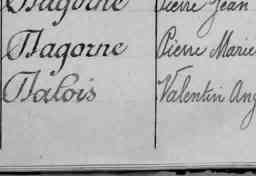 Bagorne Pierre Jean
Bagorne Pierre Marie
Balois Valentin Ang